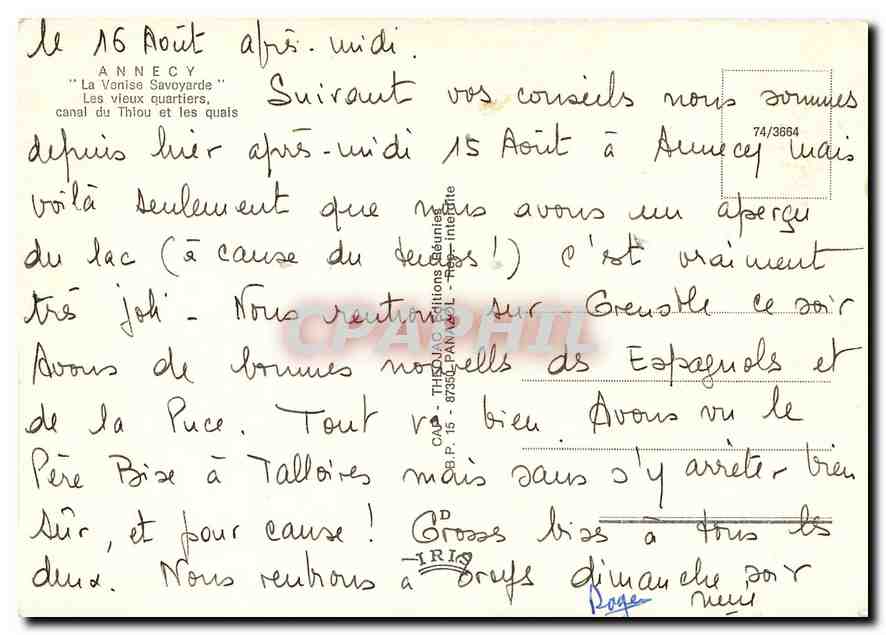 le 16 Août après-midi.
ANNECY
"La Venise Savoyarde"
Les vieux quartiers,
canal du Thiou et les quais
74/3664
Suivant vos conseils nous sommes
depuis hier après-midi 15 Août à Annecy mais
voilà seulement que nous avons un aperçu
du lac (à cause du temps!) c'est vraiment
très joli - Nous rentrons sur Grenoble ce soir
Avons de bonnes nouvelles des Espagnols et
de la Puce. Tout va bien. Avons vu le
Père Bise à Talloires mais sans s'y arrêter bien
sûr, et pour cause! Grosses bises à tous les
deux. Nous rentrons à dimanche soir
Roger
CAP - THEOJAC Editions Réunies
B.P. 15 - 87350 PANAZOL - Rep. Interdite
D
IRIS
CPAPHIL